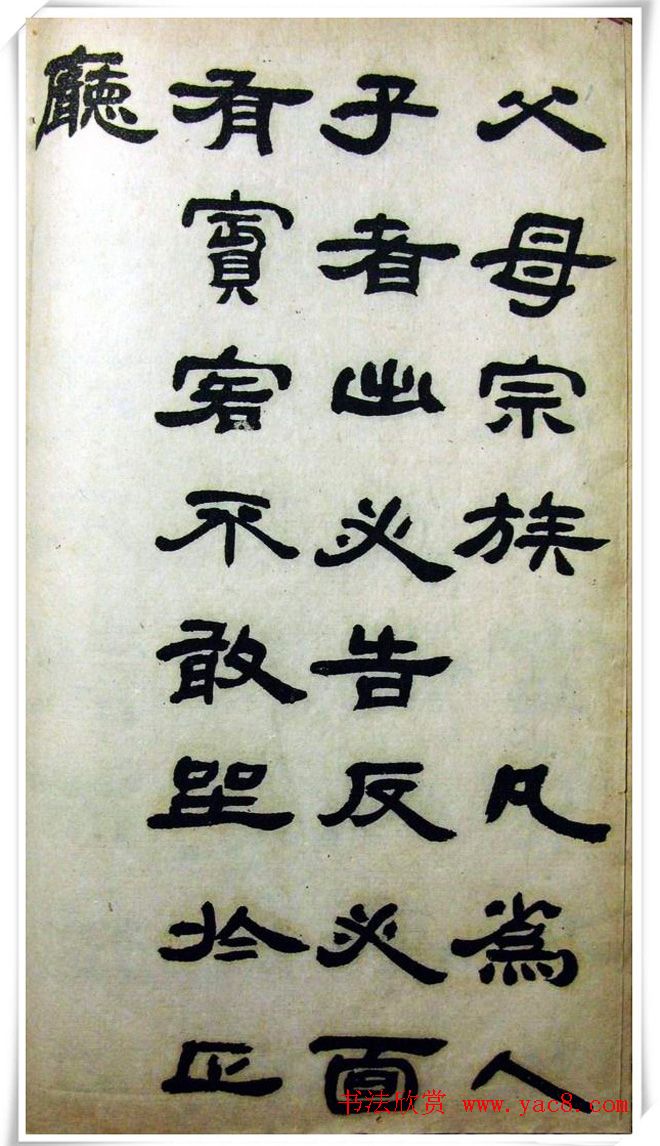 父母宗族 凡為人
子者出必告反必面
有賓客不敢坐於正
廳
书法欣赏 www.yac8.com